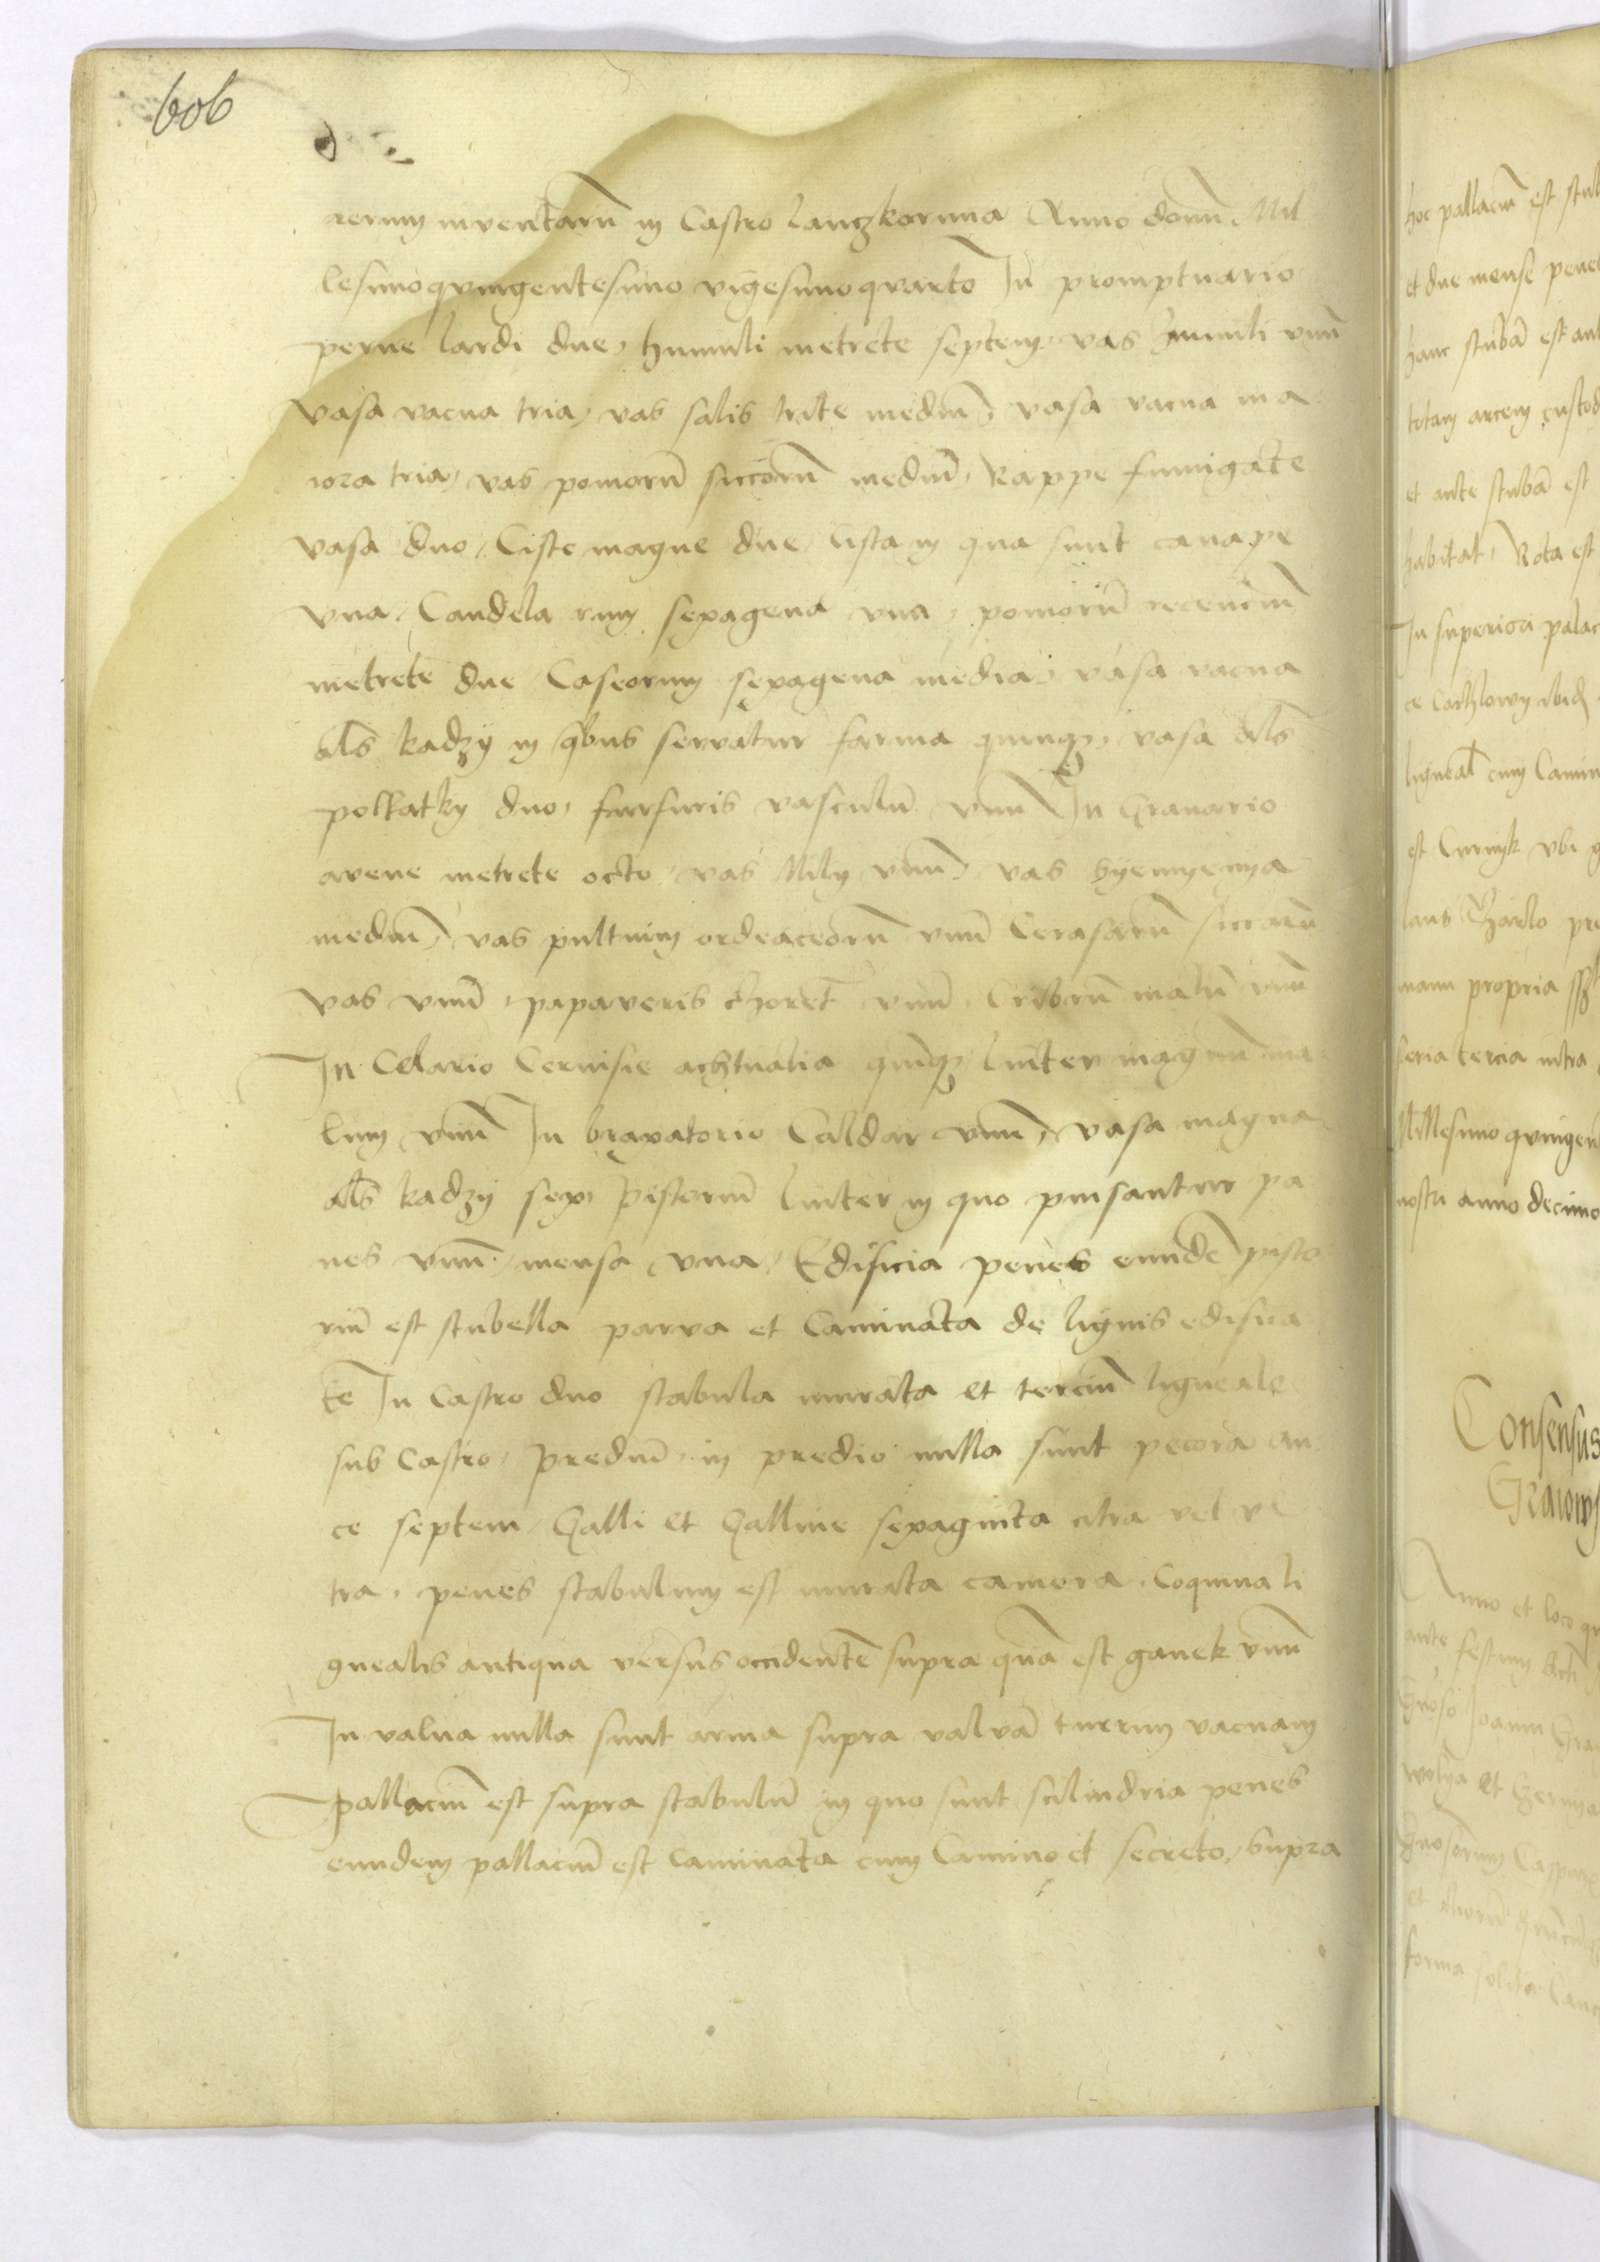 606
rerum inventarum in Castro Lanczkoruna Anno domini Mil
lesimoquingentesimo vigesimoquarto In promptuario
perne lardi due, humuli metrete septem, vas humuli vnum
vasa vacua tria, vas salis trite medium, vasa vacua ma
iora tria, vas pomorum siccorum medium, Rappe fumigate
vasa duo, Ciste magne due, Cista in qua sunt canape
vna, Candela rum sexagena vna, pomorum recencium
metrete due Caseorum sexagena media, vasa vacua
als kadzy in quibus servatur farina quinque, vasa als
polkatky duo, furfuris vasculum vnum In Granario
avene metrete octo, vas Mily vnum, vas syemyenya
medium, vas pultuim ordeaceorum vnum Cerasarum siccarum
vas vnum, papaveris choret vnum, Cribrum malum vnum
In Celario Cervisie achtualia quinque Linter magnum ma
lum vnum In braxatorio Caldar vnum, vasa magna
als kadzy sex, Pistorium Linter in quo pinsantur pa
nes vnum, mensa vna, Edificia penes eundem pisto
rium est stubella parva et Caminata de lignis edifica
te In Castro duo stabula murata et tercium ligneale
sub Castro, Predium, in predio nulla sunt pecora an
ce septem, Galli et Galline sexaginta citra vel vl
tra, penes stabulum est murata camera, Coquina li
gnealis antiqua versus occidentem supra quam est ganek vnum
In valva nulla sunt arma supra valvam turrim vacuam
Pallacium est supra stabulum in quo sunt scilindria penes
eundem pallacium est Caminata cum Camino et secreto, Supra
hoc pallacium est
et due mense
hanc stubam est
totam arcem
et ante stubam est
habitat, Rota est
In superiori
lignea cum
est ubi
manu propria
feria tercia intra
Millesimo
nostri anno decimo
Consensus
Anno et loco
ante festum
Joanni
et
forma solita